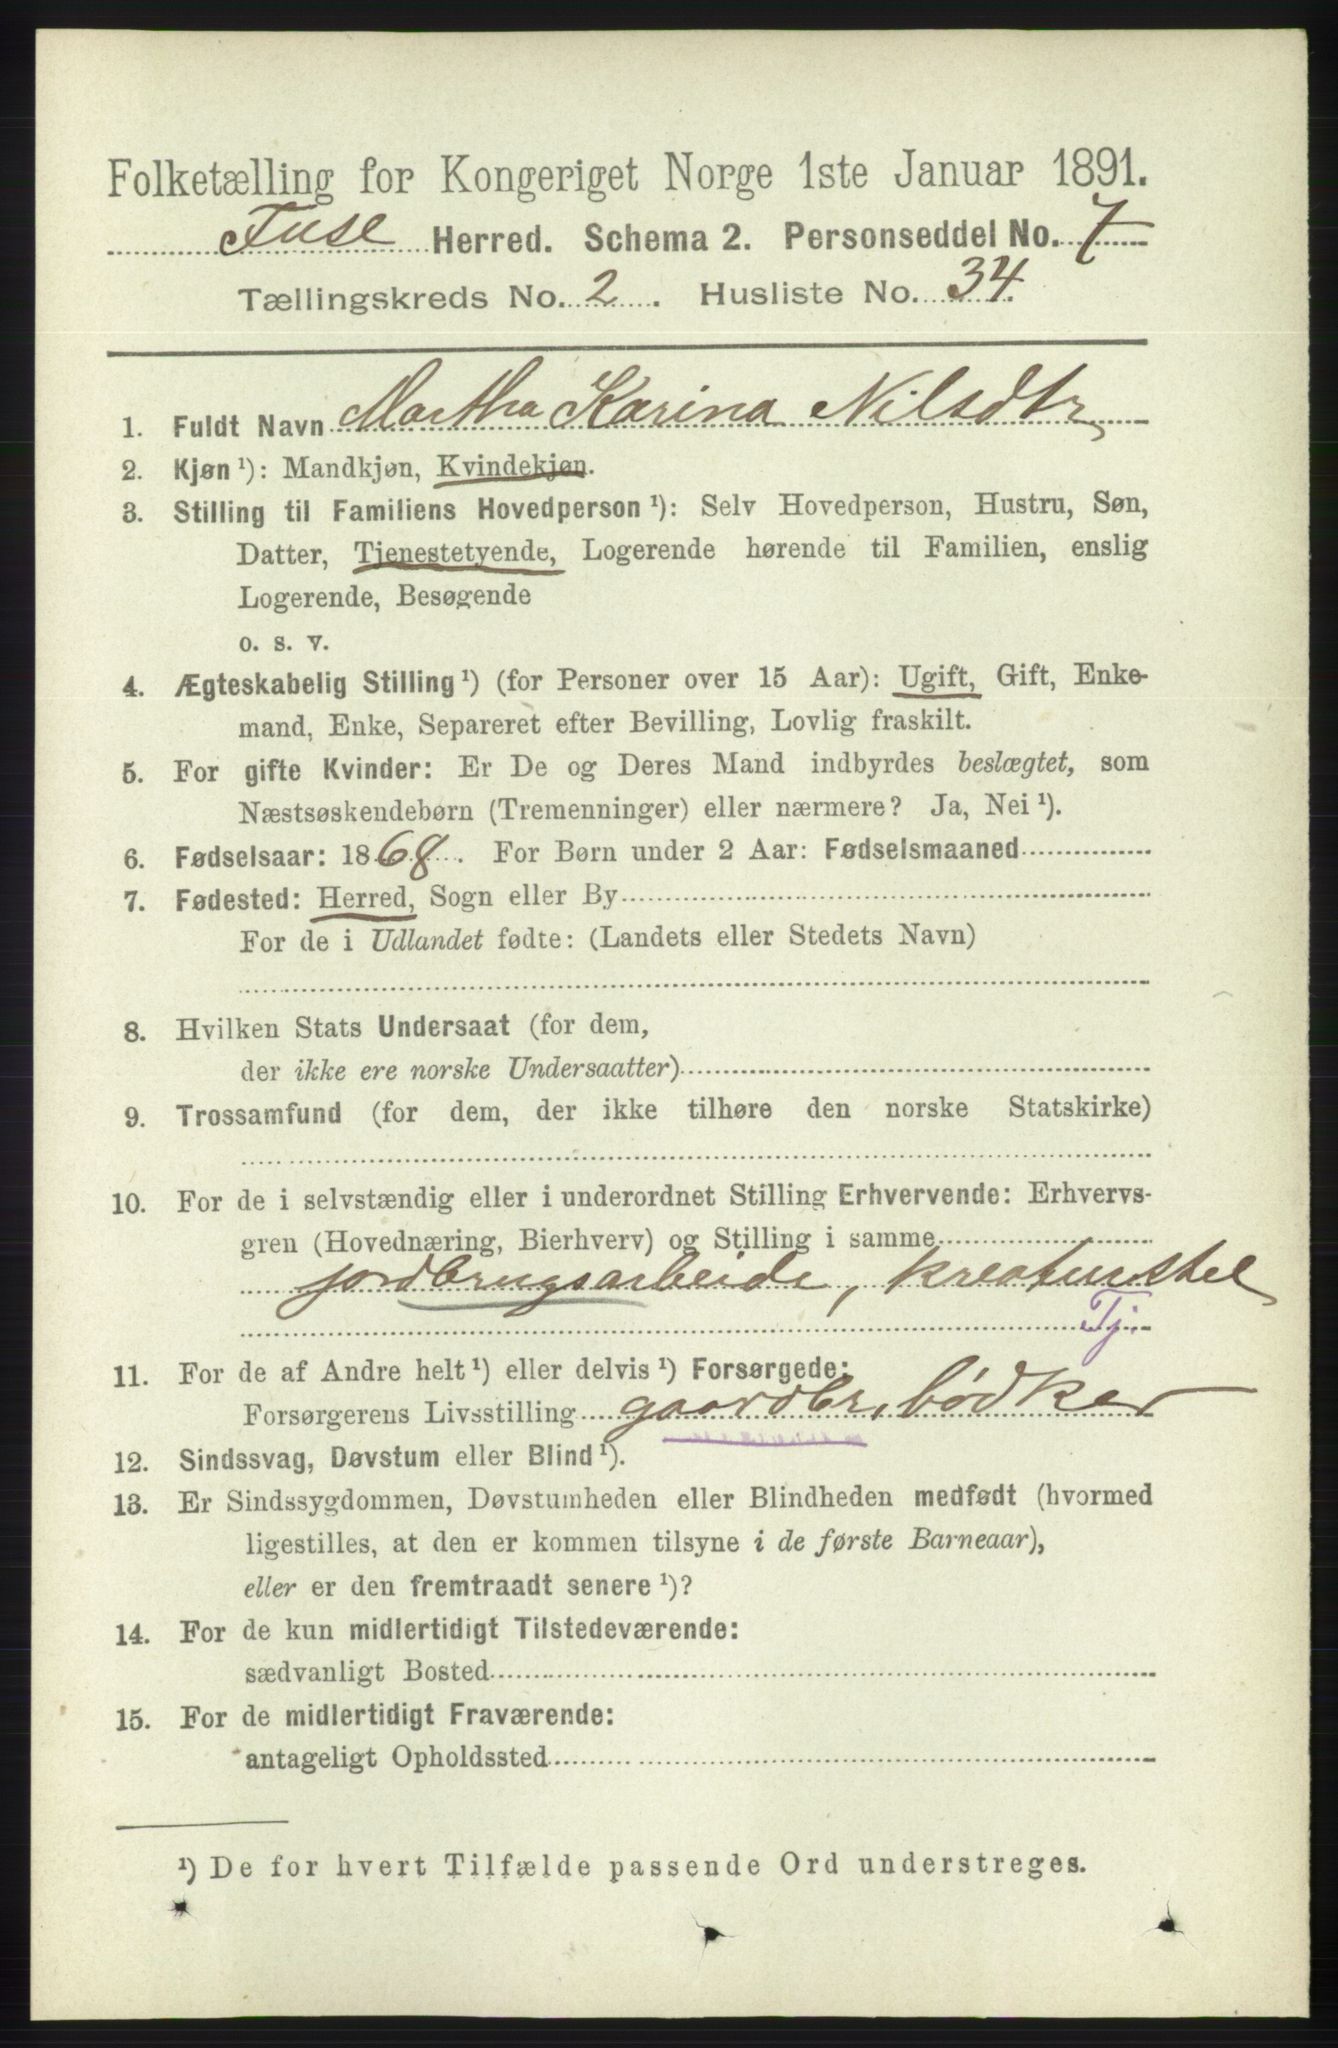 Folketælling for Kongeriget Norge 1ste Januar 1891.
Fuse Herred. Schema 2. Personseddel No. 7
Tællingskreds No. 2. Husliste No. 34.
1. Fuldt Navn Martha Karina Nilsdtr
2. Kjøn ¹): Mandkjøn, Kvindekjøn.
3. Stilling til Familiens Hovedperson ¹): Selv Hovedperson, Hustru, Søn,
Datter, Tjenestetyende, Logerende hørende til Familien, enslig
Logerende, Besøgende
o. s. v.
4. Ægteskabelig Stilling ¹) (for Personer over 15 Aar): Ugift, Gift, Enke-
mand, Enke, Separeret efter Bevilling, Lovlig fraskilt.
5. For gifte Kvinder: Er De og Deres Mand indbyrdes beslægtet, som
Næstsøskendebørn (Tremenninger) eller nærmere? Ja, Nei ¹).
6. Fødselsaar: 1868. For Børn under 2 Aar: Fødselsmaaned
7. Fødested: Herred, Sogn eller By
For de i Udlandet fødte: (Landets eller Stedets Navn)
8. Hvilken Stats Undersaat (for dem,
der ikke ere norske Undersaatter)
9. Trossamfund (for dem, der ikke tilhøre den norske Statskirke)
10. For de i selvstændig eller i underordnet Stilling Erhvervende: Erhvervs-
gren (Hovednæring, Bierhverv) og Stilling i samme
jordbrugsarbeide, kreaturstel
Tj.
11. For de af Andre helt ¹) eller delvis ¹) Forsørgede:
Forsørgerens Livsstilling gaardbr, bødker
12. Sindssvag, Døvstum eller Blind ¹).
13. Er Sindssygdommen, Døvstumheden eller Blindheden medfødt (hvormed
ligestilles, at den er kommen tilsyne i de første Barneaar),
eller er den fremtraadt senere ¹)?
14. For de kun midlertidigt Tilstedeværende:
sædvanligt Bosted
15. For de midlertidigt Fraværende:
antageligt Opholdssted
¹) De for hvert Tilfælde passende Ord understreges.